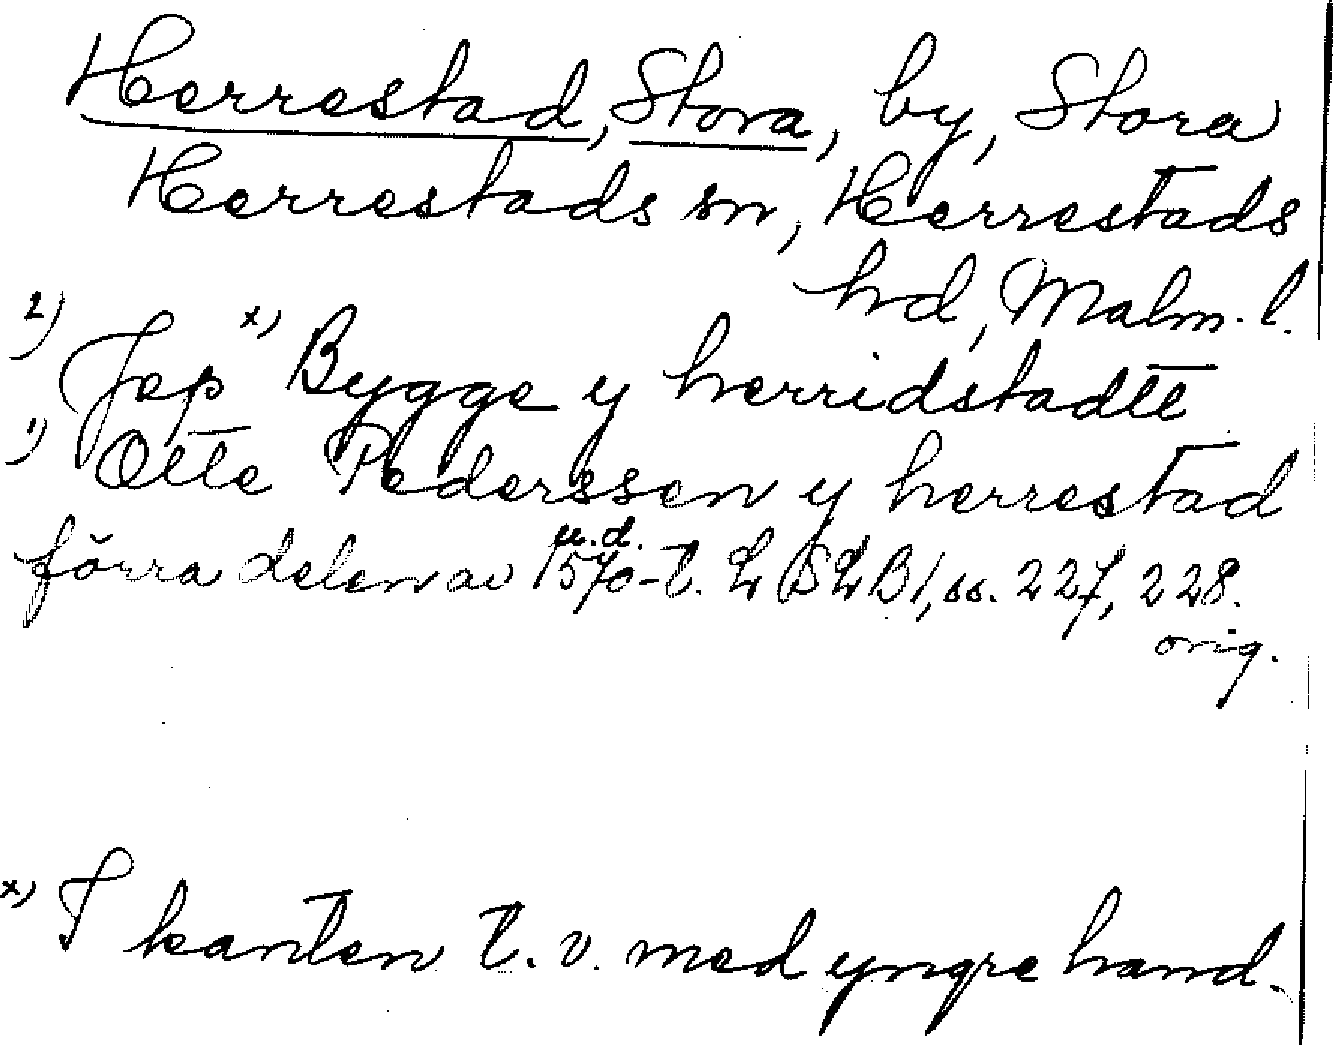 Herrestad, Stora, by, Stora
Herrestads sn, Herrestads
hd, Malm. l.
2) Jep x) Bygge y herridstadtt
1) Otte Pederssen y herrestad
u. d.
förra delen av 1570-t. L S L B 1, ss. 227, 228.
orig.
x) I kanten t. v. med yngre hand.